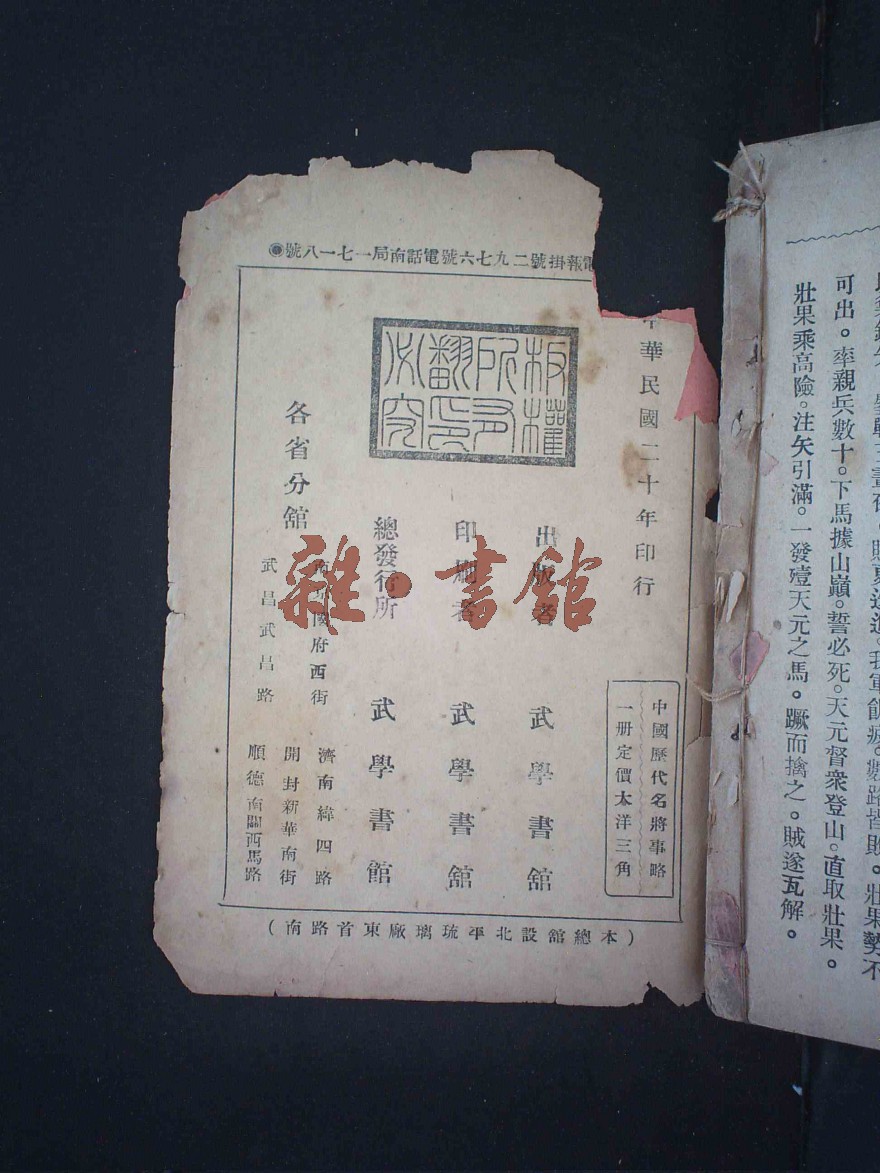 電報掛號二九七六號電話南局一七一八號
中華民國二十年印行
板權所有翻印必究
中國歷代名將事略
一册定價大洋三角
出版者 武學書舘
印刷者 武學書舘
總發行所 武學書館
各省分舘
國府西街
武昌武昌路
濟南緯四路
開封新華南街
順德南關西馬路
(本總舘設北平琉璃廠東首路南)
雜·書舘
可出。率親兵數十。下馬據山巔。誓必死。天元督衆登山。直取壯果。
壯果乘高險。注矢引滿。一發殪天元之馬。蹶而擒之。賊遂瓦解。